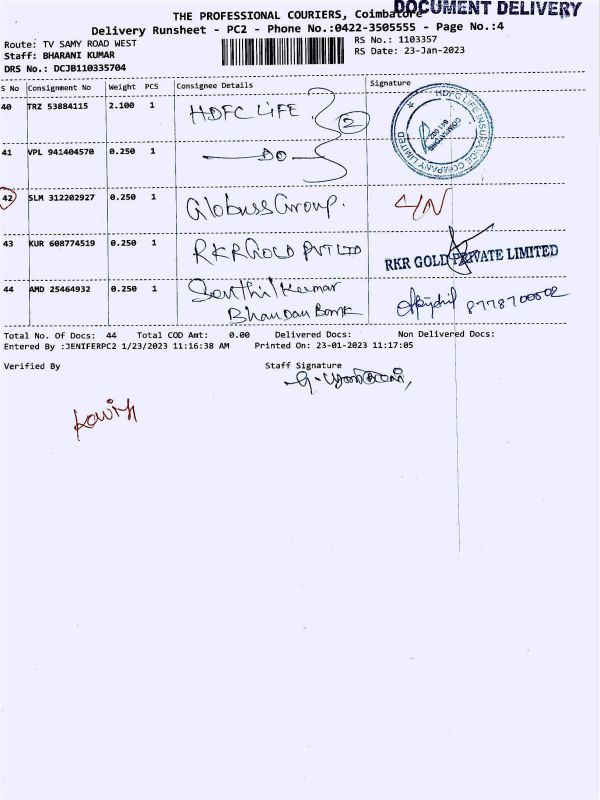 THE PROFESSIONAL COURIERS, Coimbatore
DOCUMENT DELIVERY
Delivery Runsheet - PC2 - Phone No.:0422-3505555 - Page No.:4
Route: TV SAMY ROAD WEST
RS No.: 1103357
Staff: BHARANI KUMAR
RS Date: 23-Jan-2023
DRS No.: DCJB110335704
S No Consignment No Weight PCS Consignee Details Signature
40 TRZ 53884115 2.100 1 HDFC LIFE 2
HDFC LIFE INSURANCE COMPANY LIMITED
COIMBATORE
41 VPL 941404570 0.250 1 DO
42 SLM 312202927 0.250 1 Globuss Group.
43 KUR 608774519 0.250 1 RKR GOLD PVT LTD RKR GOLD PRIVATE LIMITED
44 AMD 25464932 0.250 1 Senthil Kumar
Bhandan Bank 8778700002
Total No. Of Docs: 44 Total COD Amt: 0.00 Delivered Docs: Non Delivered Docs:
Entered By :JENIFERPC2 1/23/2023 11:16:38 AM Printed On: 23-01-2023 11:17:05
Verified By Staff Signature